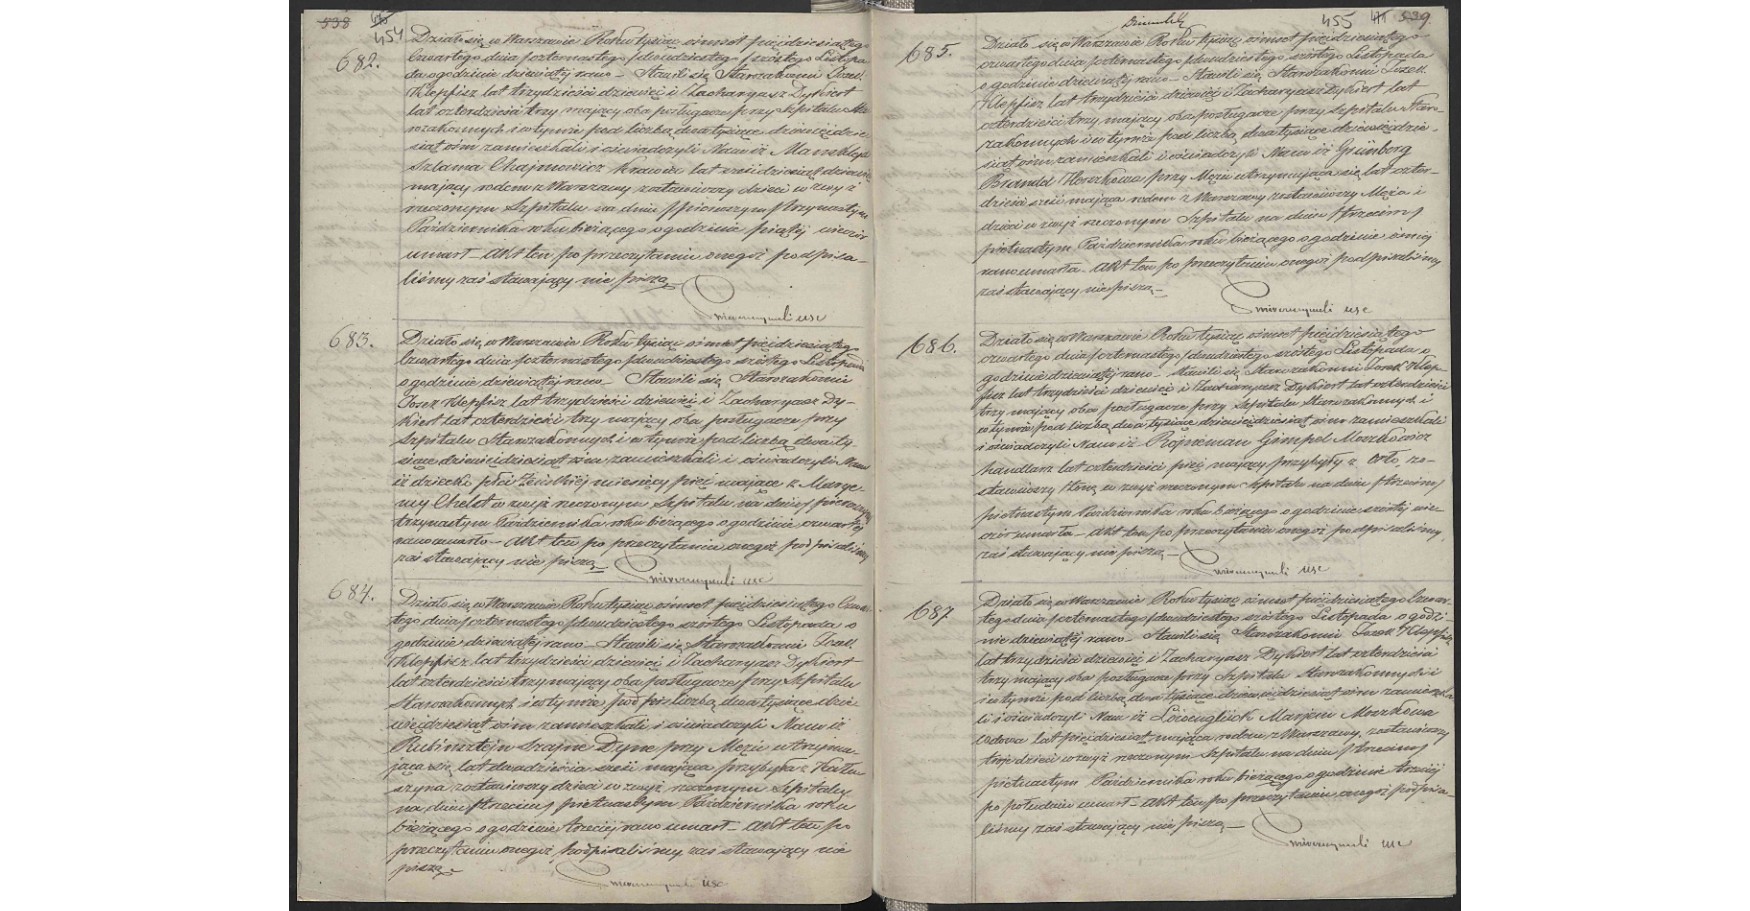 538
454
682.
Działo się w Warszawie Roku tysiąc ośmset pięćdziesiątego
czwartego dnia czternastego /dwudziestego szóstego/ Listopa-
da o godzinie dziewiątej rano – Stawili się Starozakonni Josek
Klepfisz lat trzydzieści dziewięć i Zacharyasz Dykiert
lat czterdzieści trzy mający oba posługacze przy Szpitalu Sta-
rozakonnych i w tymże pod liczbą dwa tysiące dziewięćdzie-
siąt ośm zamieszkali i oświadczyli Nam iż
Szlama Chaimowicz Krawiec lat
mający rodem z Warszawy zostawiwszy dzieci w zwyż
rzeczonym Szpitalu na dniu /pierwszym/ trzynastym
Października roku bieżącego o godzinie piątej wieczór
umarł – Akt ten po przeczytaniu onegoż podpisa-
liśmy zaś stawający nie piszą
683.
Działo się w Warszawie Roku tysiąc ośmset pięćdziesiątego
Czwartego dnia czternastego /dwudziestego szóstego/ Listopada
o godzinie dziewiątej rano – Stawili się Starozakonni
Josek Klepfisz lat trzydzieści dziewięć i Zacharyasz Dy-
kiert lat czterdzieści trzy mający oba posługacze przy
Szpitalu Starozakonnych i w tymże pod liczbą dwa ty-
siące dziewięćdziesiąt ośm zamieszkali i oświadczyli Nam
iż dziecko płci Żeńskiej miesięcy pięć mające z
w zwyż rzeczonym Szpitalu na dniu /pierwszym/
trzynastym Października roku bieżącego o godzinie czwartej
rano umarło – Akt ten po przeczytaniu onegoż podpisaliśmy
zaś stawający nie piszą
684.
Działo się w Warszawie Roku tysiąc ośmset pięćdziesiątego Czwar-
tego dnia czternastego /dwudziestego szóstego/ Listopada o
godzinie dziewiątej rano – Stawili się Starozakonni Josek
Klepfisz lat trzydzieści dziewięć i Zacharyasz Dykiert
lat czterdzieści trzy mający oba posługacze przy Szpitalu
Starozakonnych i w tymże pod liczbą dwa tysiące dzie-
więćdziesiąt ośm zamieszkali i oświadczyli Nam iż
Rubinsztejn Szajne Dyne przy Mężu utrzymu-
jąca się lat dwadzieścia sześć mająca przybyła z Kału-
szyna zostawiwszy dzieci w zwyż rzeczonym Szpitalu
na dniu /trzecim/ piętnastym Października roku
bieżącego o godzinie trzeciej rano umarł – Akt ten po
przeczytaniu onegoż podpisaliśmy zaś stawający nie
piszą
455
539.
685.
Działo się w Warszawie Roku tysiąc ośmset pięćdziesiątego
czwartego dnia czternastego /dwudziestego szóstego/ Listopada
o godzinie dziewiątej rano – Stawili się Starozakonni Josek
Klepfisz lat trzydzieści dziewięć i Zacharyasz Dykiert lat
czterdzieści trzy mający oba posługacze przy Szpitalu Staro-
zakonnych i w tymże pod liczbą dwa tysiące dziewięćdzie-
siąt ośm zamieszkali i oświadczyli Nam iż Grünberg
Brandel Herszkowa przy Mężu utrzymująca się lat czter-
dzieści sześć mająca rodem z Warszawy zostawiwszy Męża i
dzieci w zwyż rzeczonym Szpitalu na dniu /trzecim/
piętnastym Października roku bieżącego o godzinie ósmej
rano umarła – Akt ten po przeczytaniu onegoż podpisaliśmy
zaś stawający nie piszą –
686.
Działo się w Warszawie Roku tysiąc ośmset pięćdziesiątego
czwartego dnia czternastego /dwudziestego szóstego/ Listopada o
godzinie dziewiątej rano – Stawili się Starozakonni Josek Klep-
fisz lat trzydzieści dziewięć i Zacharyasz Dykiert lat czterdzieści
trzy mający oba posługacze przy Szpitalu Starozakonnych i
w tymże pod liczbą dwa tysiące dziewięćdziesiąt ośm zamieszkali
i oświadczyli Nam iż Rojneman Gimpel Moszkowicz
handlarz lat czterdzieści pięć mający przybyły z zo-
stawiwszy Żonę w zwyż rzeczonym Szpitalu na dniu /trzecim/
piętnastym Października roku bieżącego o godzinie szóstej wie-
czór umarła – Akt ten po przeczytaniu onegoż podpisaliśmy,
zaś stawający nie piszą –
687
Działo się w Warszawie Roku tysiąc ośmset pięćdziesiątego Czwar-
tego dnia czternastego /dwudziestego szóstego/ Listopada o godzi-
nie dziewiątej rano – Stawili się Starozakonni Josek Klepfisz
lat trzydzieści dziewięć i Zacharyasz Dykiert lat czterdzieści
trzy mający oba posługacze przy Szpitalu Starozakonnych
i w tymże pod liczbą dwa tysiące dziewięćdziesiąt ośm zamieszka-
li i oświadczyli Nam iż Löwenglück Marjem Moszkowa
Wdowa lat pięćdziesiąt mająca rodem z Warszawy, zostawiwszy
troje dzieci w zwyż rzeczonym Szpitalu na dniu /trzecim/
piętnastym Października roku bieżącego o godzinie trzeciej
po południu umarł – Akt ten po przeczytaniu onegoż podpisa-
liśmy zaś stawający nie piszą –